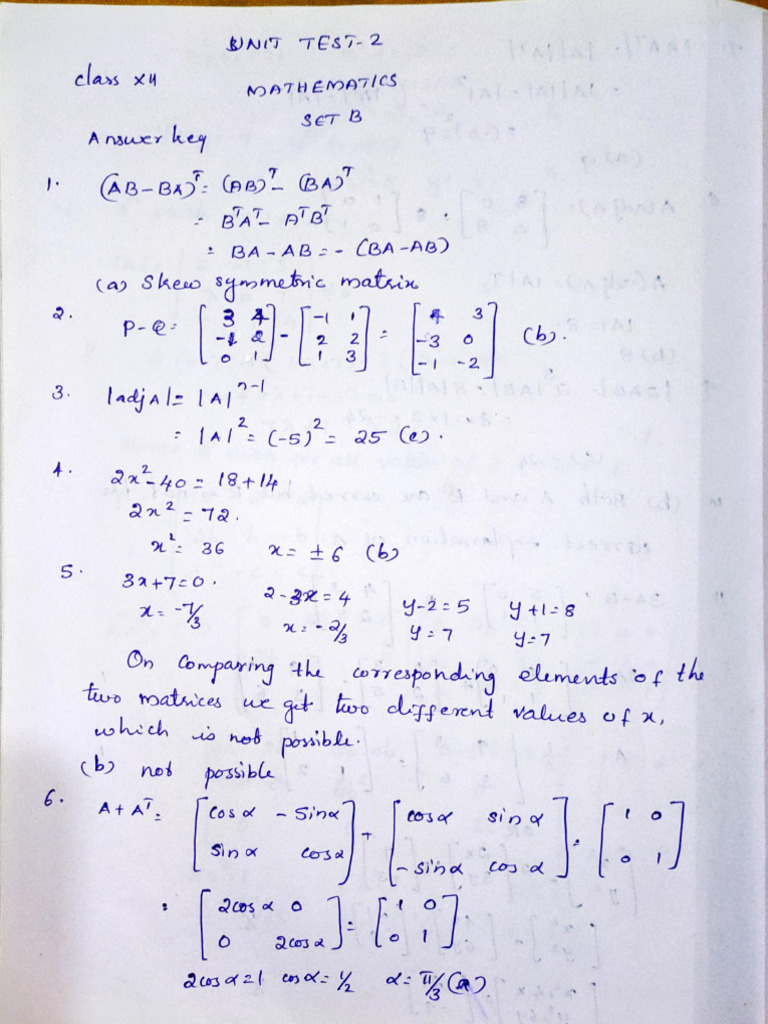 UNIT TEST-2
class XII
MATHEMATICS
SET B
Answer key
1. (AB-BA)ᵀ = (AB)ᵀ - (BA)ᵀ
= BᵀAᵀ - AᵀBᵀ
= BA - AB = - (BA-AB)
(a) Skew symmetric matrix
2. P-Q = [3 4; -1 2; 0 1] - [-1 1; 2 2; 1 3] = [4 3; -3 0; -1 -2] (b).
3. |adj A| = |A|ⁿ⁻¹
= |A|² = (-5)² = 25 (c).
4. 2x² - 40 = 18 + 14
2x² = 72.
x² = 36 x = ± 6 (b)
5. 3x+7=0. 2-3x=4 y-2=5 y+1=8
x = -7/3 x = -2/3 y = 7 y = 7
On comparing the corresponding elements of the
two matrices we get two different values of x,
which is not possible.
(b) not possible
6. A + Aᵀ = [cos α - sin α; sin α cos α] + [cos α sin α; - sin α cos α] = [1 0; 0 1]
= [2cos α 0; 0 2cos α] = [1 0; 0 1]
2cos α = 1 cos α = 1/2 α = π/3 (a)